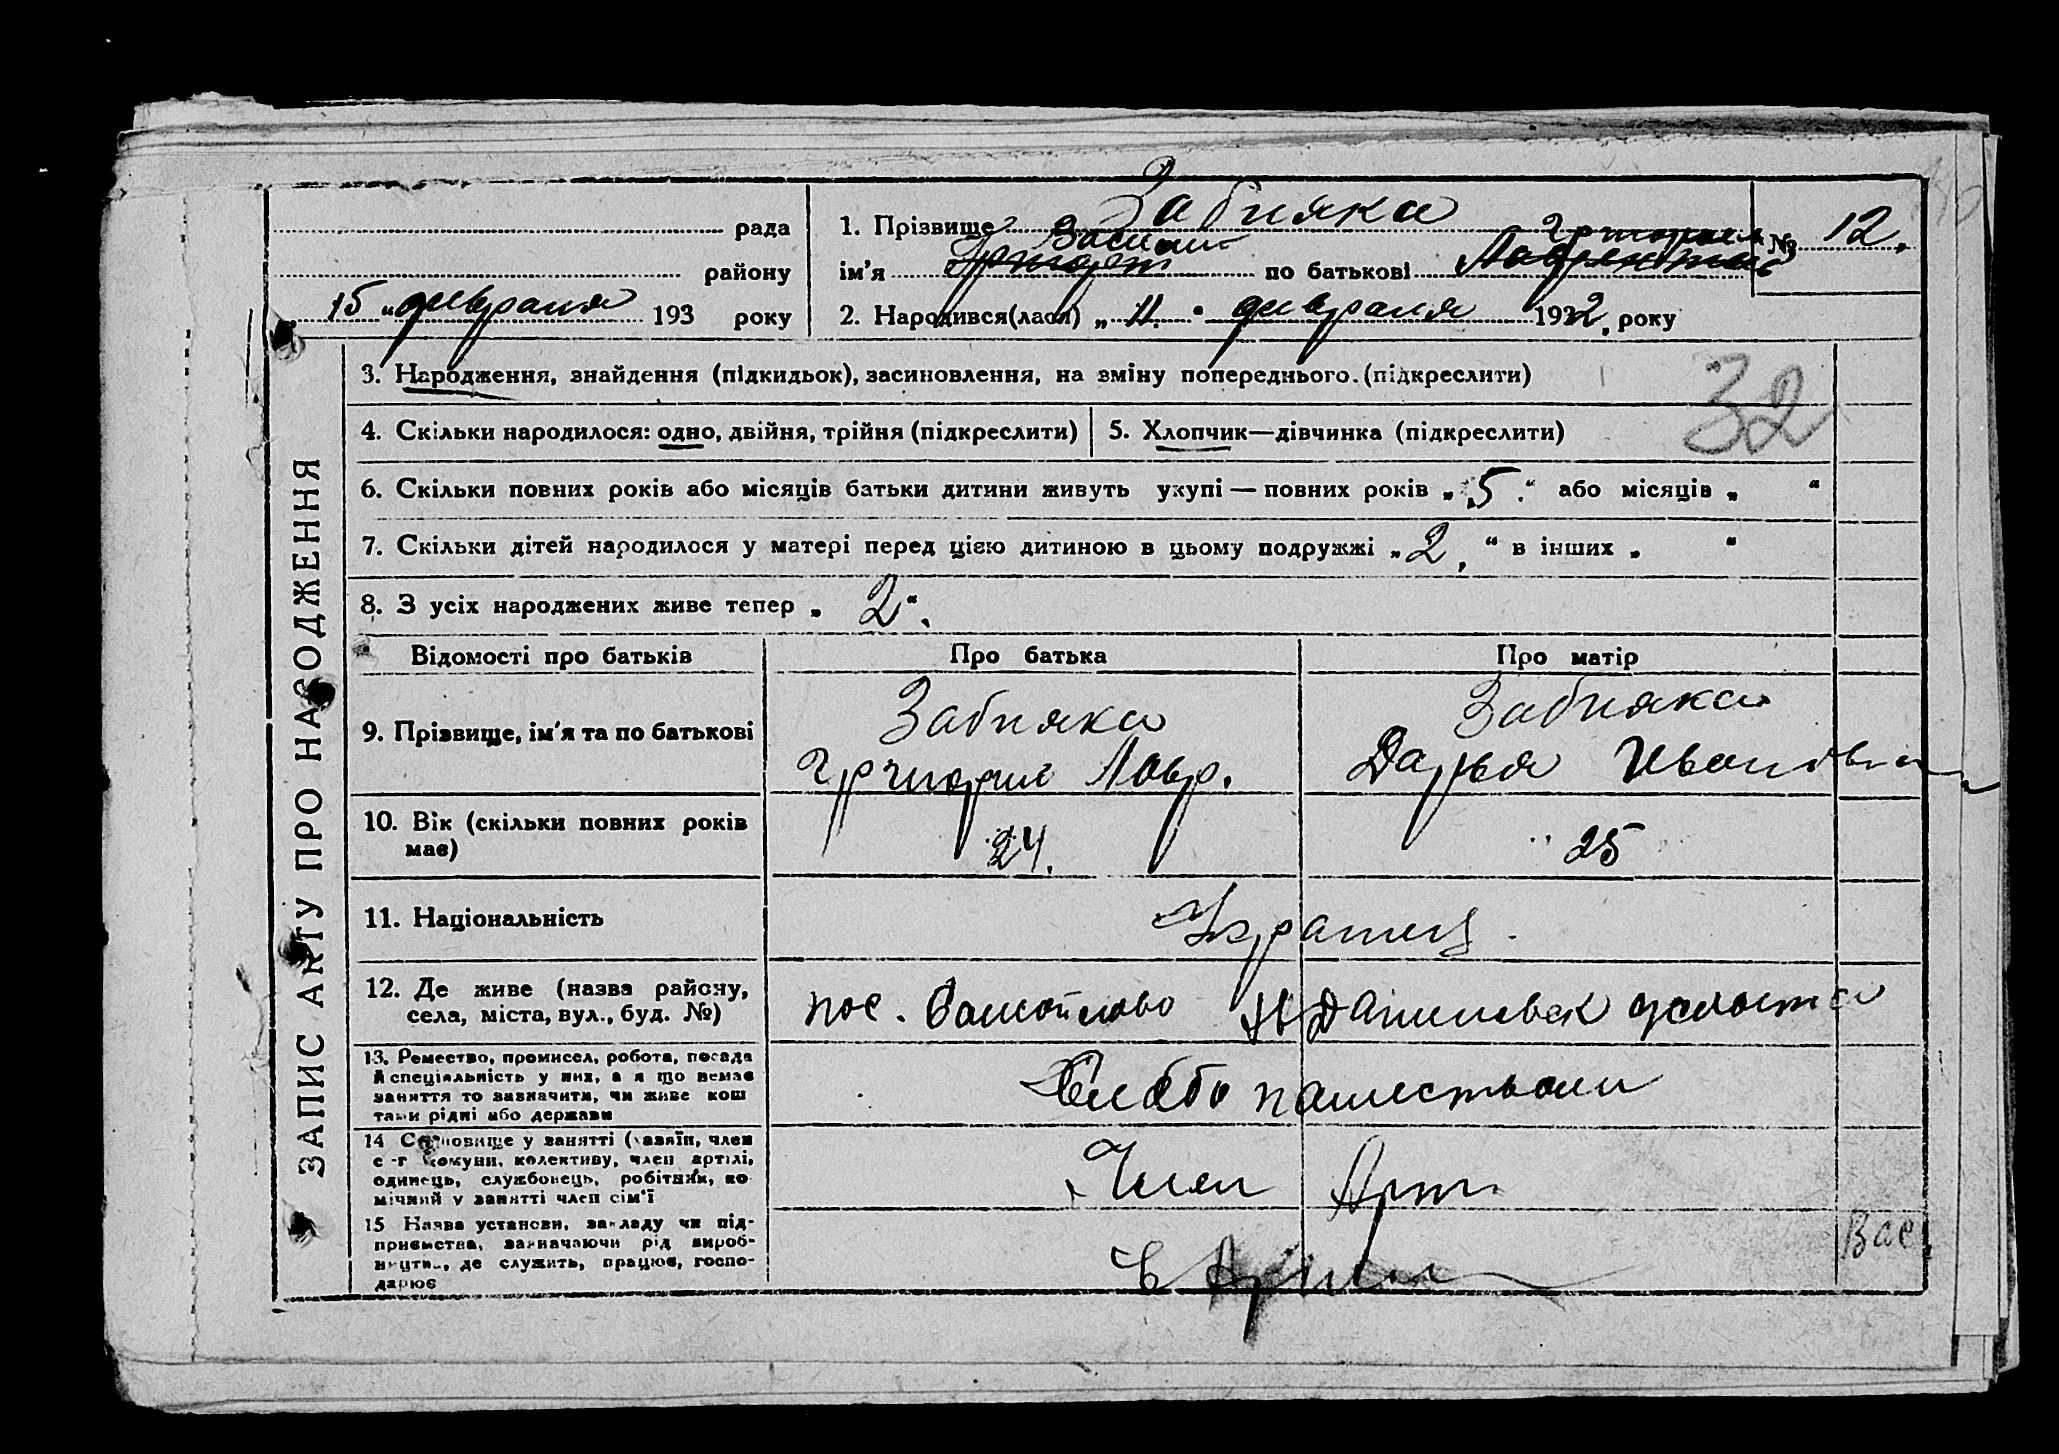 рада
району
15 „ февраля 193 року
1. Прізвище Забияка
Василий
ім'я Григорий по батькові Григорьев
№ 12.
2. Народився(лася) „ 11. " февраля 1932, року
3. Народження, знайдення (підкидьок), засиновлення, на зміну попереднього. (підкреслити)
32
4. Скільки народилося: одно, двійня, трійня (підкреслити)
5. Хлопчик—дівчинка (підкреслити)
6. Скільки повних років або місяців батьки дитини живуть укупі — повних років „ 5 “ або місяців „ “
7. Скільки дітей народилося у матері перед цією дитиною в цьому подружжі „ 2, “ в інших „ “
8. З усіх народжених живе тепер „ 2 “.
ЗАПИС АКТУ ПРО НАРОДЖЕННЯ
Відомості про батьків
Про батька
Про матір
9. Прізвище, ім'я та по батькові
Забияка
Григорий Лавр.
Забияка
Дарья Ивановна
10. Вік (скільки повних років
має)
24.
25
11. Національність
Украинец
12. Де живе (назва району,
села, міста, вул., буд. №)
пос.
13. Ремество, промисел, робота, посада
й спеціяльність у них, а я що немає
заняття то зазначити, чи живе кош
тами рідні або держави
14 Становище у занятті (хазяїн, член
с-г комуни, колективу, член артілі,
одинець, службовець, робітник, по
мічний у занятті член сім'ї
Член Арт
15 Назва установи, закладу чи під-
приємства, зазначаючи рід вироб-
ництва, де служить, працює, госпо-
дарює
В Артели
Вас.